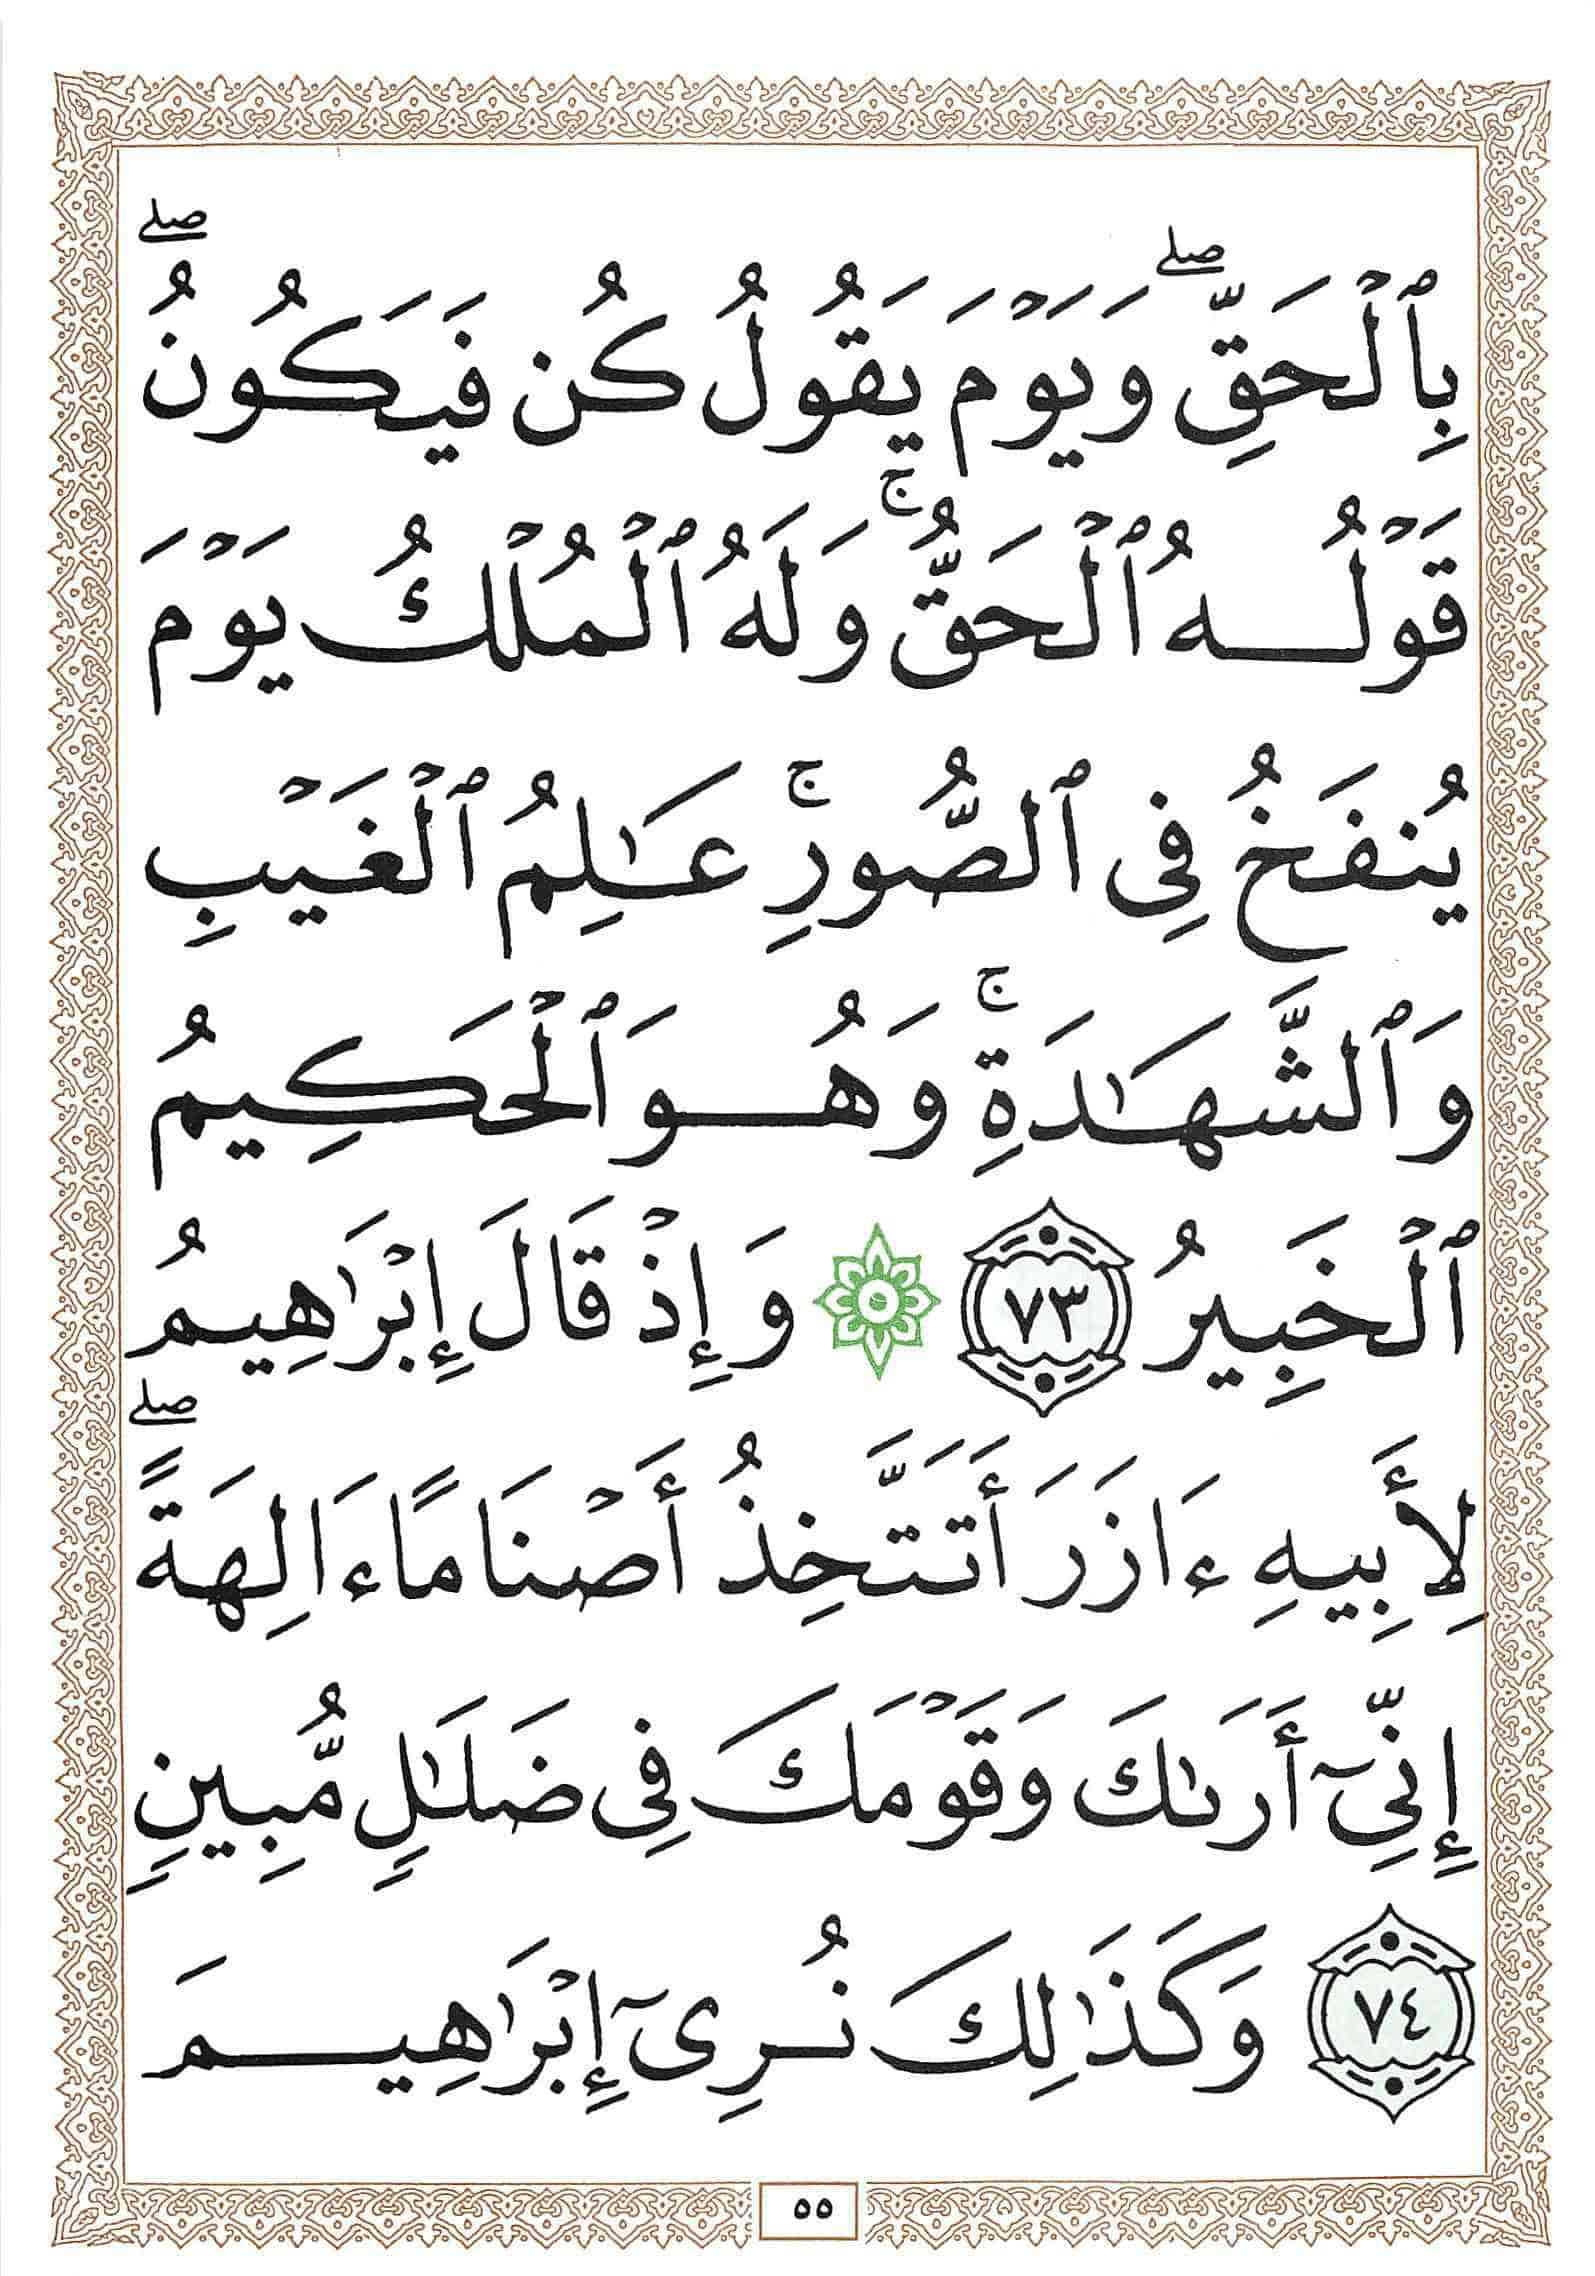 بِٱلْحَقِّ ۖ وَيَوْمَ يَقُولُ كُن فَيَكُونُ ۖ
قَوْلُهُ ٱلْحَقُّ ۚ وَلَهُ ٱلْمُلْكُ يَوْمَ
يُنفَخُ فِى ٱلصُّورِ ۚ عَـٰلِمُ ٱلْغَيْبِ
وَٱلشَّهَـٰدَةِ ۚ وَهُوَ ٱلْحَكِيمُ
ٱلْخَبِيرُ ٧٣ وَإِذْ قَالَ إِبْرَٰهِيمُ
لِأَبِيهِ ءَازَرَ أَتَتَّخِذُ أَصْنَامًا ءَالِهَةً ۖ
إِنِّىٓ أَرَىٰكَ وَقَوْمَكَ فِى ضَلَـٰلٍ مُّبِينٍ
٧٤ وَكَذَٰلِكَ نُرِىٓ إِبْرَٰهِيمَ
٥٥